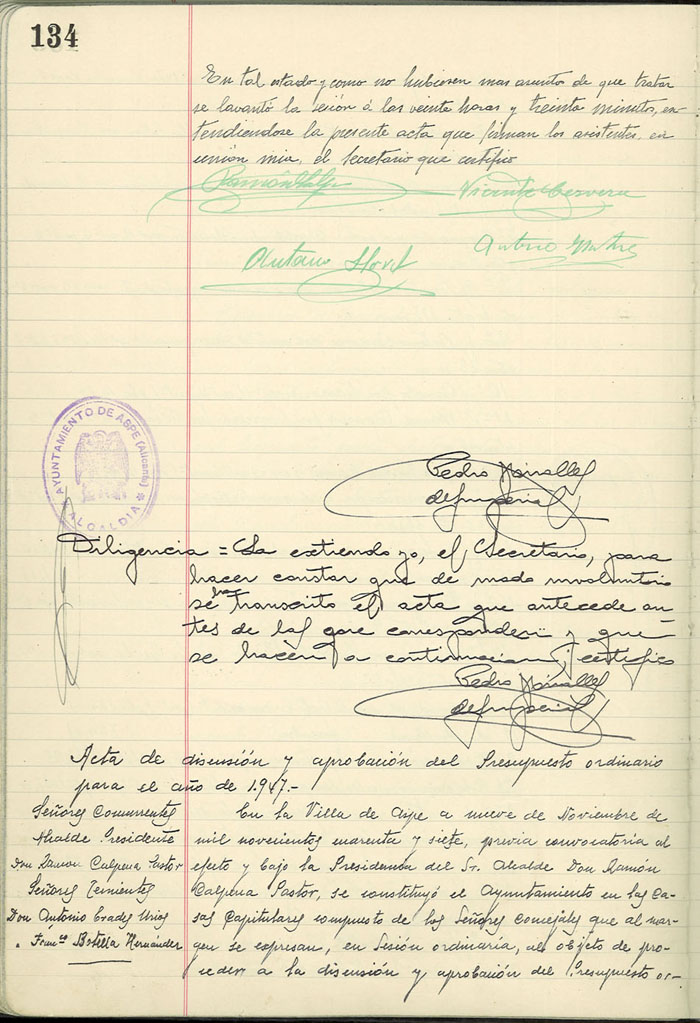 134
En tal estado y como no hubiesen mas asunto de que tratar
se lavantó la sesión á las veinte horas y treinta minutos, ex-
tendiendose la presente acta que firman los asistentes, en
unión mia, el Secretario que certifico
Vicente Cervera
Antonio
AYUNTAMIENTO DE ASPE (Alicante)
ALCALDIA
Pedro
Diligencia = La extiendo yo, el Secretario, para
hacer constar que de modo involuntario
se ha transcrito el acta que antecede an-
tes de las que corresponden y que
se hacen a continuacion; certifico
Pedro
Acta de discusión y aprobación del Presupuesto ordinario
para el año de 1.947.-
Señores Concurrentes
Alcalde Presidente
Don Ramon Calpena Pastor
Señores Tenientes
Don Antonio Erades Urios
" Franco Botella Hernández
En la Villa de Aspe a nueve de Noviembre de
mil novecientos cuarenta y siete, previa convocatoria al
efecto y bajo la Presidencia del Sr. Alcalde Don Ramón
Calpena Pastor, se constituyó el Ayuntamiento en las Ca-
sas Capitulares compuesto de los Señores Concejales que al mar-
gen se expresan, en Sesión ordinaria, al objeto de pro-
ceder a la discusión y aprobación del Presupuesto or-